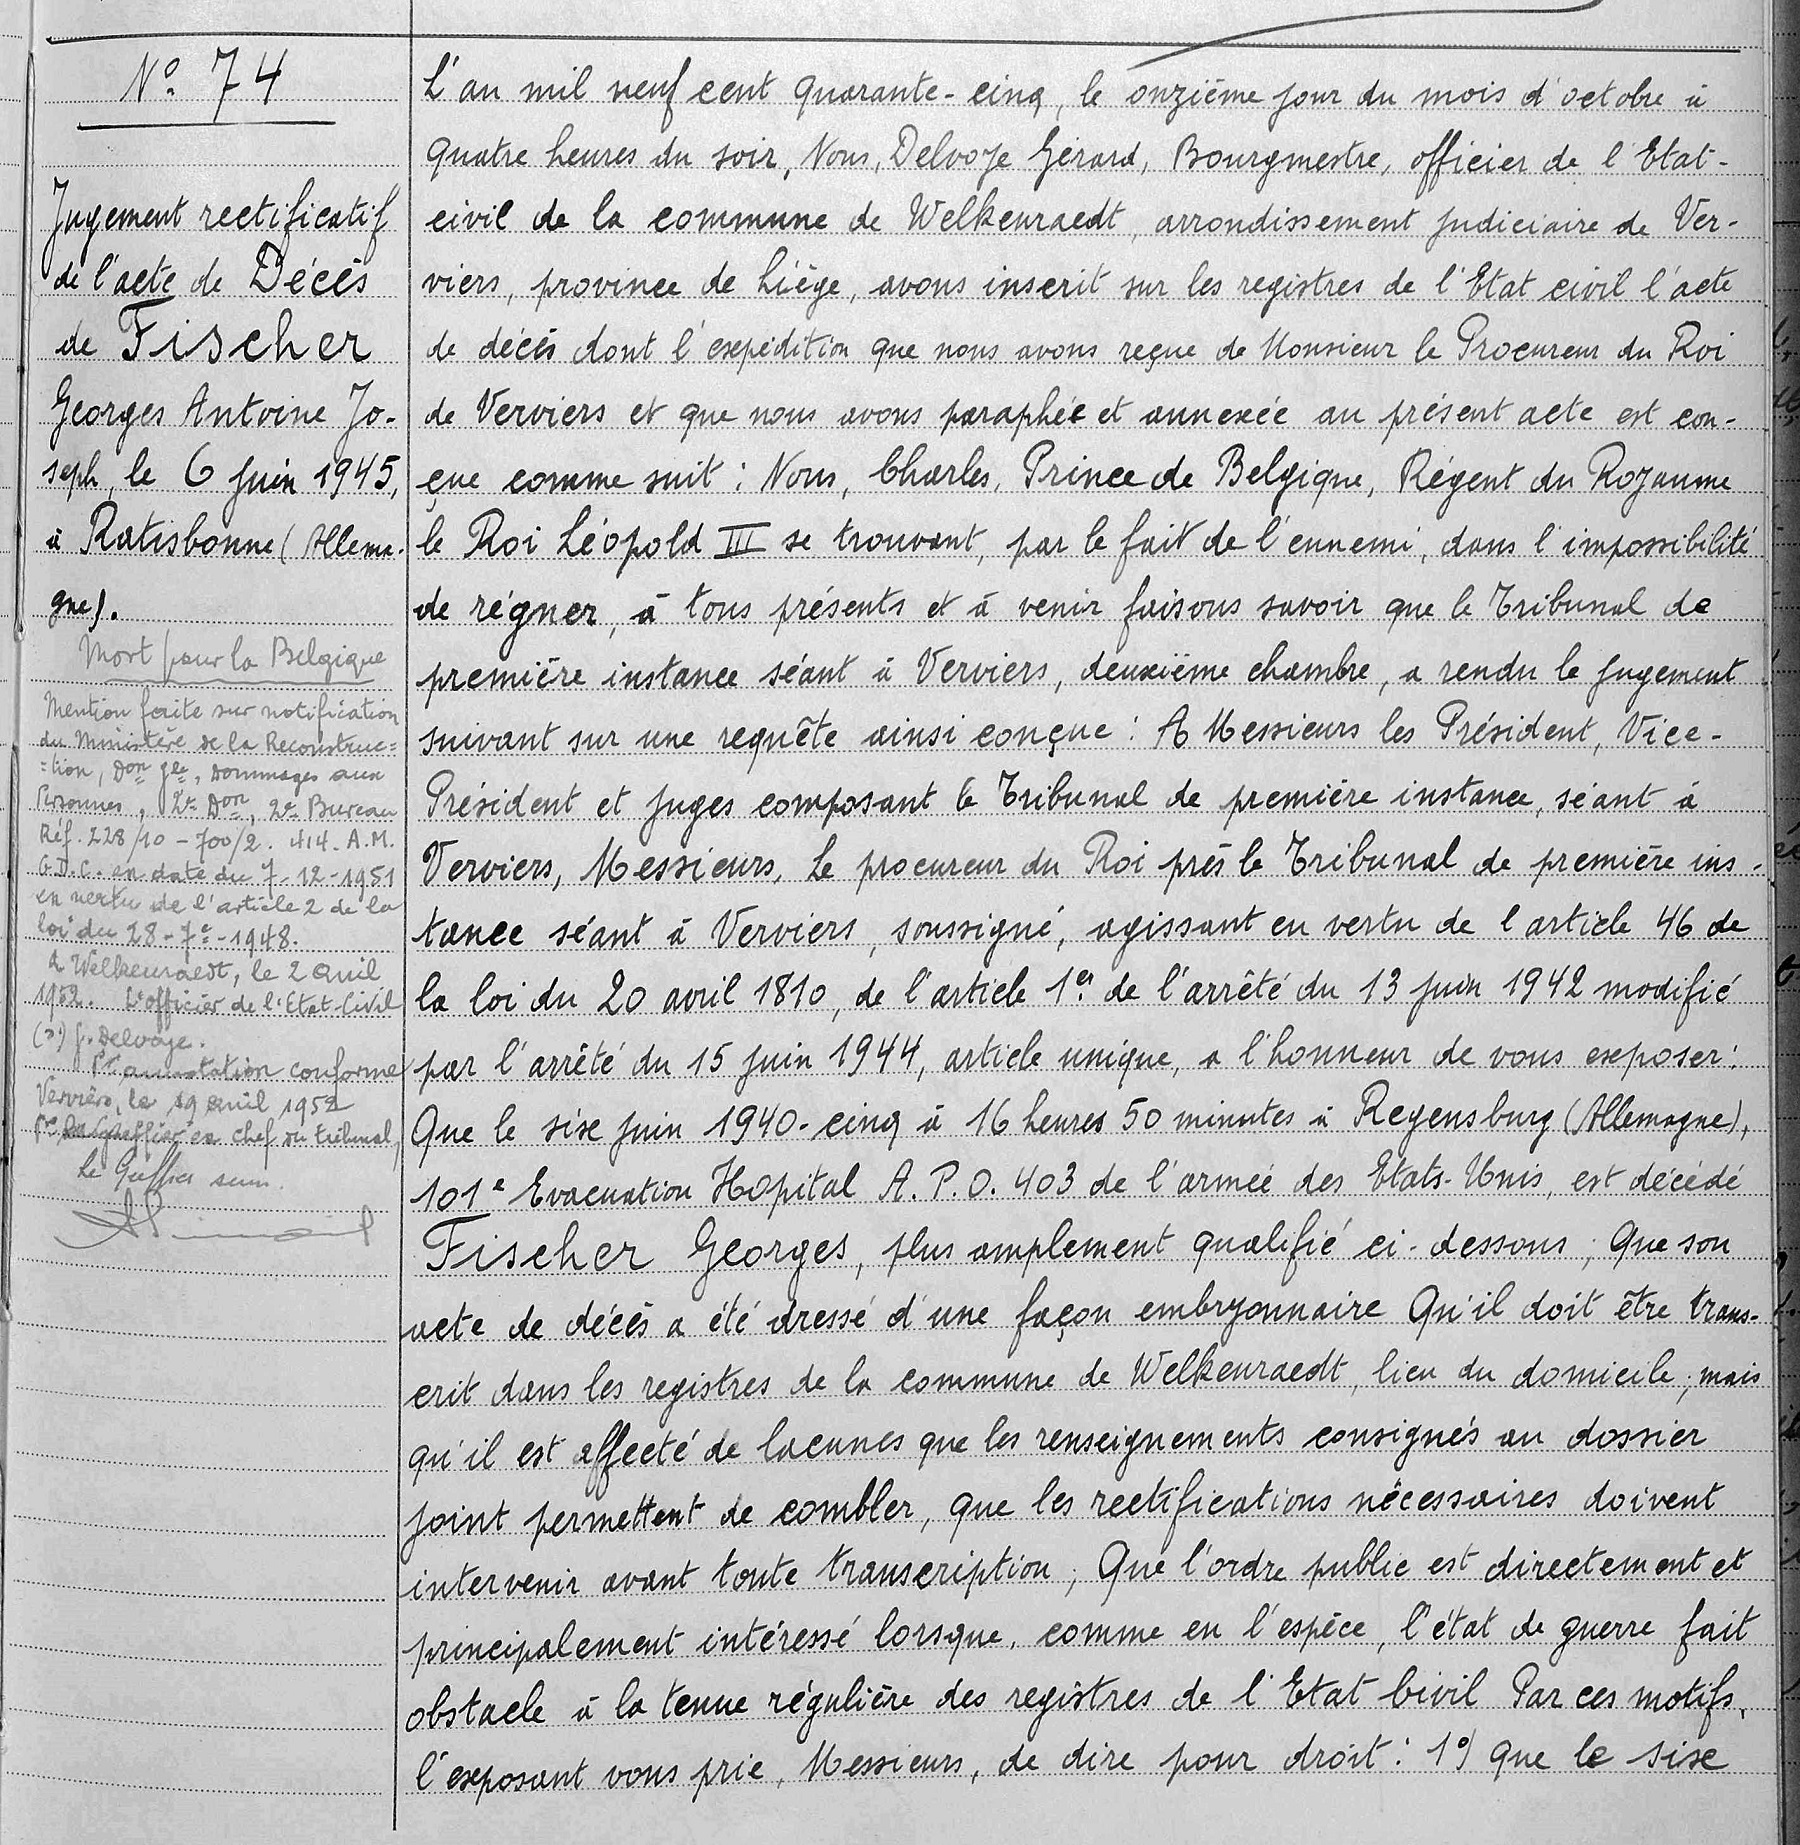 N° 74
Jugement rectificatif
de l'acte de Décès
de Fischer
Georges Antoine Jo-
seph, le 6 juin 1945,
à Ratisbonne (Allema-
gne).
Mort pour la Belgique
Mention faite sur notification
du Ministère de la Reconstruc=
=tion, Don gle, Dommages aux
Personnes, 2e Don, 2e Bureau
Réf. 228/10 - 700/2. 414. A.M.
G.D.C. en date du 7-12-1951
en vertu de l'article 2 de la
loi du 28-7e-1948.
A Welkenraedt, le 2 avril
1952. L'officier de l'Etat-Civil
(s) G. Delvoye.
Pr annotation conforme
Verviers, le 19 avril 1952
Pr Greffier en chef du tribunal,
Le Greffier
L'an mil neuf cent quarante-cinq, le onzième jour du mois d'octobre à
quatre heures du soir, Nous, Delvoye Gérard, Bourgmestre, officier de l'Etat-
civil de la commune de Welkenraedt, arrondissement judiciaire de Ver-
viers, province de Liège, avons inscrit sur les registres de l'Etat civil l'acte
de décès dont l'expédition que nous avons reçue de Monsieur le Procureur du Roi
de Verviers et que nous avons paraphée et annexée au présent acte est con-
çue comme suit : Nous, Charles, Prince de Belgique, Régent du Royaume
le Roi Léopold III se trouvant, par le fait de l'ennemi, dans l'impossibilité
de régner, à tous présents et à venir faisons savoir que le Tribunal de
première instance séant à Verviers, deuxième chambre, a rendu le jugement
suivant sur une requête ainsi conçue : A Messieurs les Président, Vice-
Président et juges composant le Tribunal de première instance, séant à
Verviers, Messieurs, Le procureur du Roi près le Tribunal de première ins-
tance séant à Verviers, soussigné, agissant en vertu de l'article 46 de
la loi du 20 avril 1810, de l'article 1er de l'arrêté du 13 juin 1942 modifié
par l'arrêté du 15 juin 1944, article unique, a l'honneur de vous exposer :
Que le six juin 1940-cinq à 16 heures 50 minutes à Regensburg (Allemagne),
101e Evacuation Hopital A.P.O. 403 de l'armée des Etats-Unis, est décédé
Fischer Georges, plus amplement qualifié ci-dessous ; Que son
acte de décès a été dressé d'une façon embryonnaire Qu'il doit être trans-
crit dans les registres de la commune de Welkenraedt, lieu du domicile ; mais
qu'il est affecté de lacunes que les renseignements consignés au dossier
joint permettent de combler, que les rectifications nécessaires doivent
intervenir avant toute transcription ; Que l'ordre public est directement et
principalement intéressé lorsque, comme en l'espèce, l'état de guerre fait
obstacle à la tenue régulière des registres de l'Etat Civil Par ces motifs,
l'exposant vous prie, Messieurs, de dire pour droit : 1°) que le six